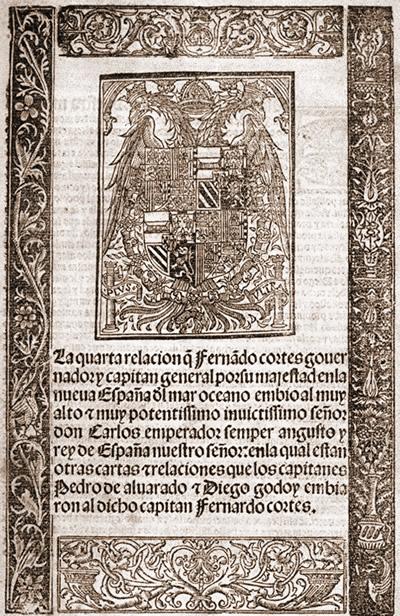 PLVS
VLTR
La quarta relacion q̃ Fernãdo cortes gouer
nador y capitan general por su majestad en la
nueua España dl mar oceano embio al muy
alto ⁊ muy potentissimo inuictissimo señor
don Carlos emperador semper augusto y
rey de España nuestro señor: en la qual estan
otras cartas ⁊ relaciones que los capitanes
Pedro de aluarado ⁊ Diego godoy embia
ron al dicho capitan Fernardo cortes.